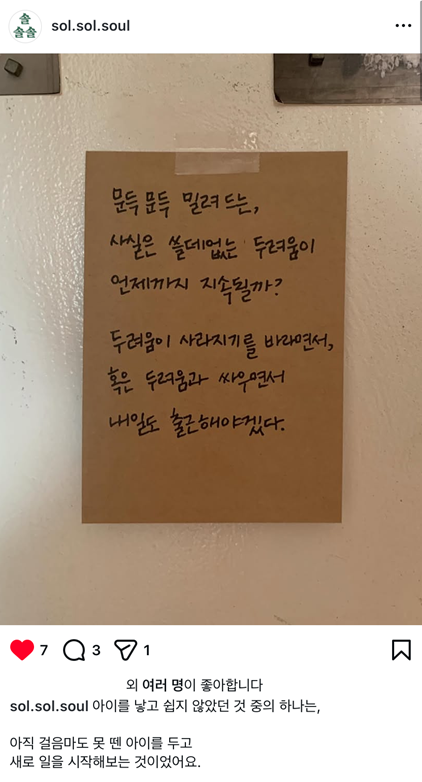 솔
솔솔
sol.sol.soul
문득문득 밀려드는,
사실은 쓸데없는 두려움이
언제까지 지속될까?
두려움이 사라지기를 바라면서,
혹은 두려움과 싸우면서
내일도 출근해야겠다.
7 3 1
외 여러 명이 좋아합니다
sol.sol.soul 아이를 낳고 쉽지 않았던 것 중의 하나는,
아직 걸음마도 못 뗀 아이를 두고
새로 일을 시작해보는 것이었어요.